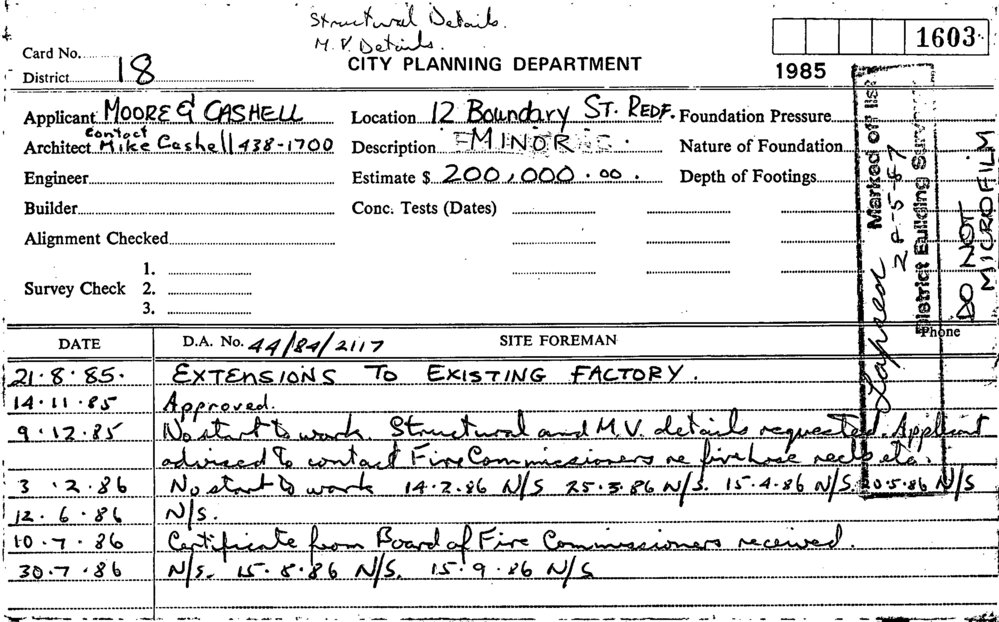 Structural Details.
M.V. Details.
1603
Card No.
CITY PLANNING DEPARTMENT
1985
District 18
Applicant MOORE & CASHELL Location 12 Boundary ST. REDF. Foundation Pressure
contact
Architect Mike Cashell 438-1700 Description MINOR Nature of Foundation
Engineer Estimate $ 200,000.00. Depth of Footings
Builder Conc. Tests (Dates)
Alignment Checked
1.
Survey Check 2.
3.
Lapsed
Marked off list
28-5-87
District Building Surveyor
DO NOT
MICROFILM
Phone
DATE D.A. No. 44/84/2117 SITE FOREMAN
21.8.85. EXTENSIONS TO EXISTING FACTORY.
14.11.85 Approved.
9.12.85 No start to work. Structural and M.V. details requested. Applicant
advised to contact Fire Commissioners re fire hose reels etc.
3.2.86 No start to work 14.2.86 N/S 25.3.86 N/S. 15.4.86 N/S. 20.5.86 N/S
12.6.86 N/S.
10.7.86 Certificate from Board of Fire Commissioners received.
30.7.86 N/S. 15.8.86 N/S. 15.9.86 N/S